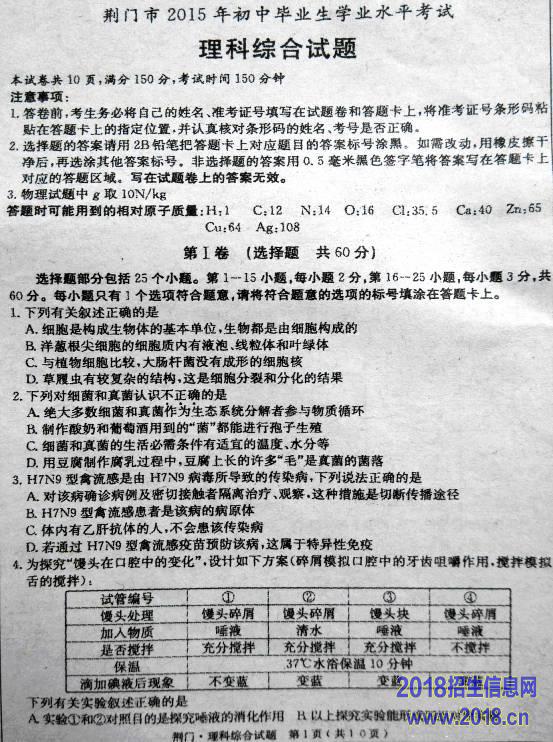 荆门市 2015 年初中毕业生学业水平考试
理科综合试题
本试卷共 10 页,满分 150 分,考试时间 150 分钟
注意事项:
1. 答卷前,考生务必将自己的姓名、准考证号填写在试题卷和答题卡上,将准考证号条形码粘
贴在答题卡上的指定位置,并认真核对条形码的姓名、考号是否正确。
2. 选择题的答案请用 2B 铅笔把答题卡上对应题目的答案标号涂黑。如需改动,用橡皮擦干
净后,再选涂其他答案标号。非选择题的答案用 0.5 毫米黑色签字笔将答案写在答题卡上
对应的答题区域。写在试题卷上的答案无效。
3. 物理试题中 g 取 10N/kg
答题时可能用到的相对原子质量:H:1 C:12 N:14 O:16 Cl:35.5 Ca:40 Zn:65
Cu:64 Ag:108
第Ⅰ卷 (选择题 共 60 分)
选择题部分包括 25 个小题。第 1—15 小题,每小题 2 分,第 16—25 小题,每小题 3 分,共
60 分。每小题只有 1 个选项符合题意,请将符合题意的选项的标号填涂在答题卡上。
1. 下列有关叙述正确的是
A. 细胞是构成生物体的基本单位,生物都是由细胞构成的
B. 洋葱根尖细胞的细胞质内有液泡、线粒体和叶绿体
C. 与植物细胞比较,大肠杆菌没有成形的细胞核
D. 草履虫有较复杂的结构,这是细胞分裂和分化的结果
2. 下列对细菌和真菌认识不正确的是
A. 绝大多数细菌和真菌作为生态系统分解者参与物质循环
B. 制作酸奶和葡萄酒用到的“菌”都能进行孢子生殖
C. 细菌和真菌的生活必需条件有适宜的温度、水分等
D. 用豆腐制作腐乳过程中,豆腐上长的许多“毛”是真菌的菌落
3. H7N9 型禽流感是由 H7N9 病毒所导致的传染病,下列说法正确的是
A. 对该病确诊病例及密切接触者隔离治疗、观察,这种措施是切断传播途径
B. H7N9 型禽流感患者是该病的病原体
C. 体内有乙肝抗体的人,不会患该传染病
D. 若通过 H7N9 型禽流感疫苗预防该病,这属于特异性免疫
4. 为探究“馒头在口腔中的变化”,设计如下方案(碎屑模拟口腔中的牙齿咀嚼作用,搅拌模拟
舌的搅拌):
试管编号 ① ② ③ ④
馒头处理 馒头碎屑 馒头碎屑 馒头块 馒头碎屑
加入物质 唾液 清水 唾液 唾液
是否搅拌 充分搅拌 充分搅拌 充分搅拌 不搅拌
保温 37℃水浴保温 10 分钟
滴加碘液后现象 不变蓝 变蓝 变蓝
下列有关实验叙述正确的是
A. 实验①和②对照目的是探究唾液的消化作用 B. 以上探究实验能形成
荆门·理科综合试题 第 1 页(共 10 页)
2018招生信息网
www.2018.cn